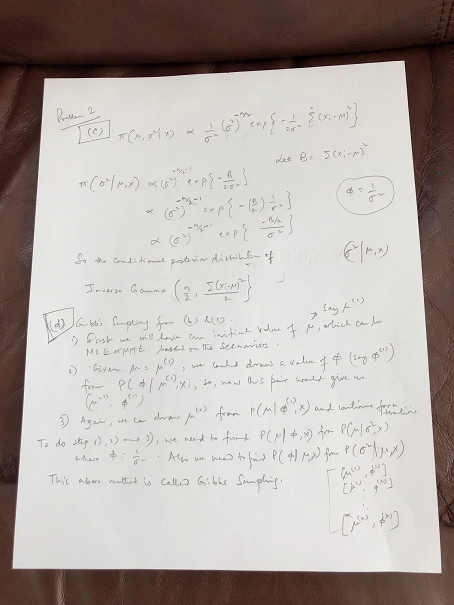 Problem 2
(c) π(μ, σ²|x) ∝ 1/σ² (σ²)^{-n/2} exp{ -1/2σ² Σ(xi-μ)² }
Let B = Σ(xi-μ)²
π(σ²|μ,x) ∝ (σ²)^{-n/2-1} exp{ -B/2σ² }
φ = 1/σ²
∝ (σ²)^{-n/2-1} exp{ -(B/2) 1/σ² }
∝ (σ²)^{-n/2-1} exp{ -B/2 / σ² }
So the conditional posterior distribution of (σ²|μ,x)
Inverse Gamma ( n/2, Σ(xi-μ)²/2 )
(d) Gibbs Sampling from (b) & (c).
1) First we will have an initial value of μ, say μ^(1), which can be
MLE or MME based on the scenarios.
2) Given μ = μ^(1), we could draw a value of φ (say φ^(1))
from P(φ|μ^(1),x), so, now this pair would give us
(μ^(1), φ^(1))
3) Again, we can draw μ^(2) from P(μ|φ^(1),x) and continue from
To do step 1), 2) and 3), we need to find P(μ|φ,x) from P(μ|σ²,x)
where φ = 1/σ². Also we need to find P(φ|μ,x) from P(σ²|μ,x)
This above method is called Gibbs Sampling.
[μ^(1), φ^(1)]
[μ^(2), φ^(2)]
⋮
[μ^(n), φ^(n)]